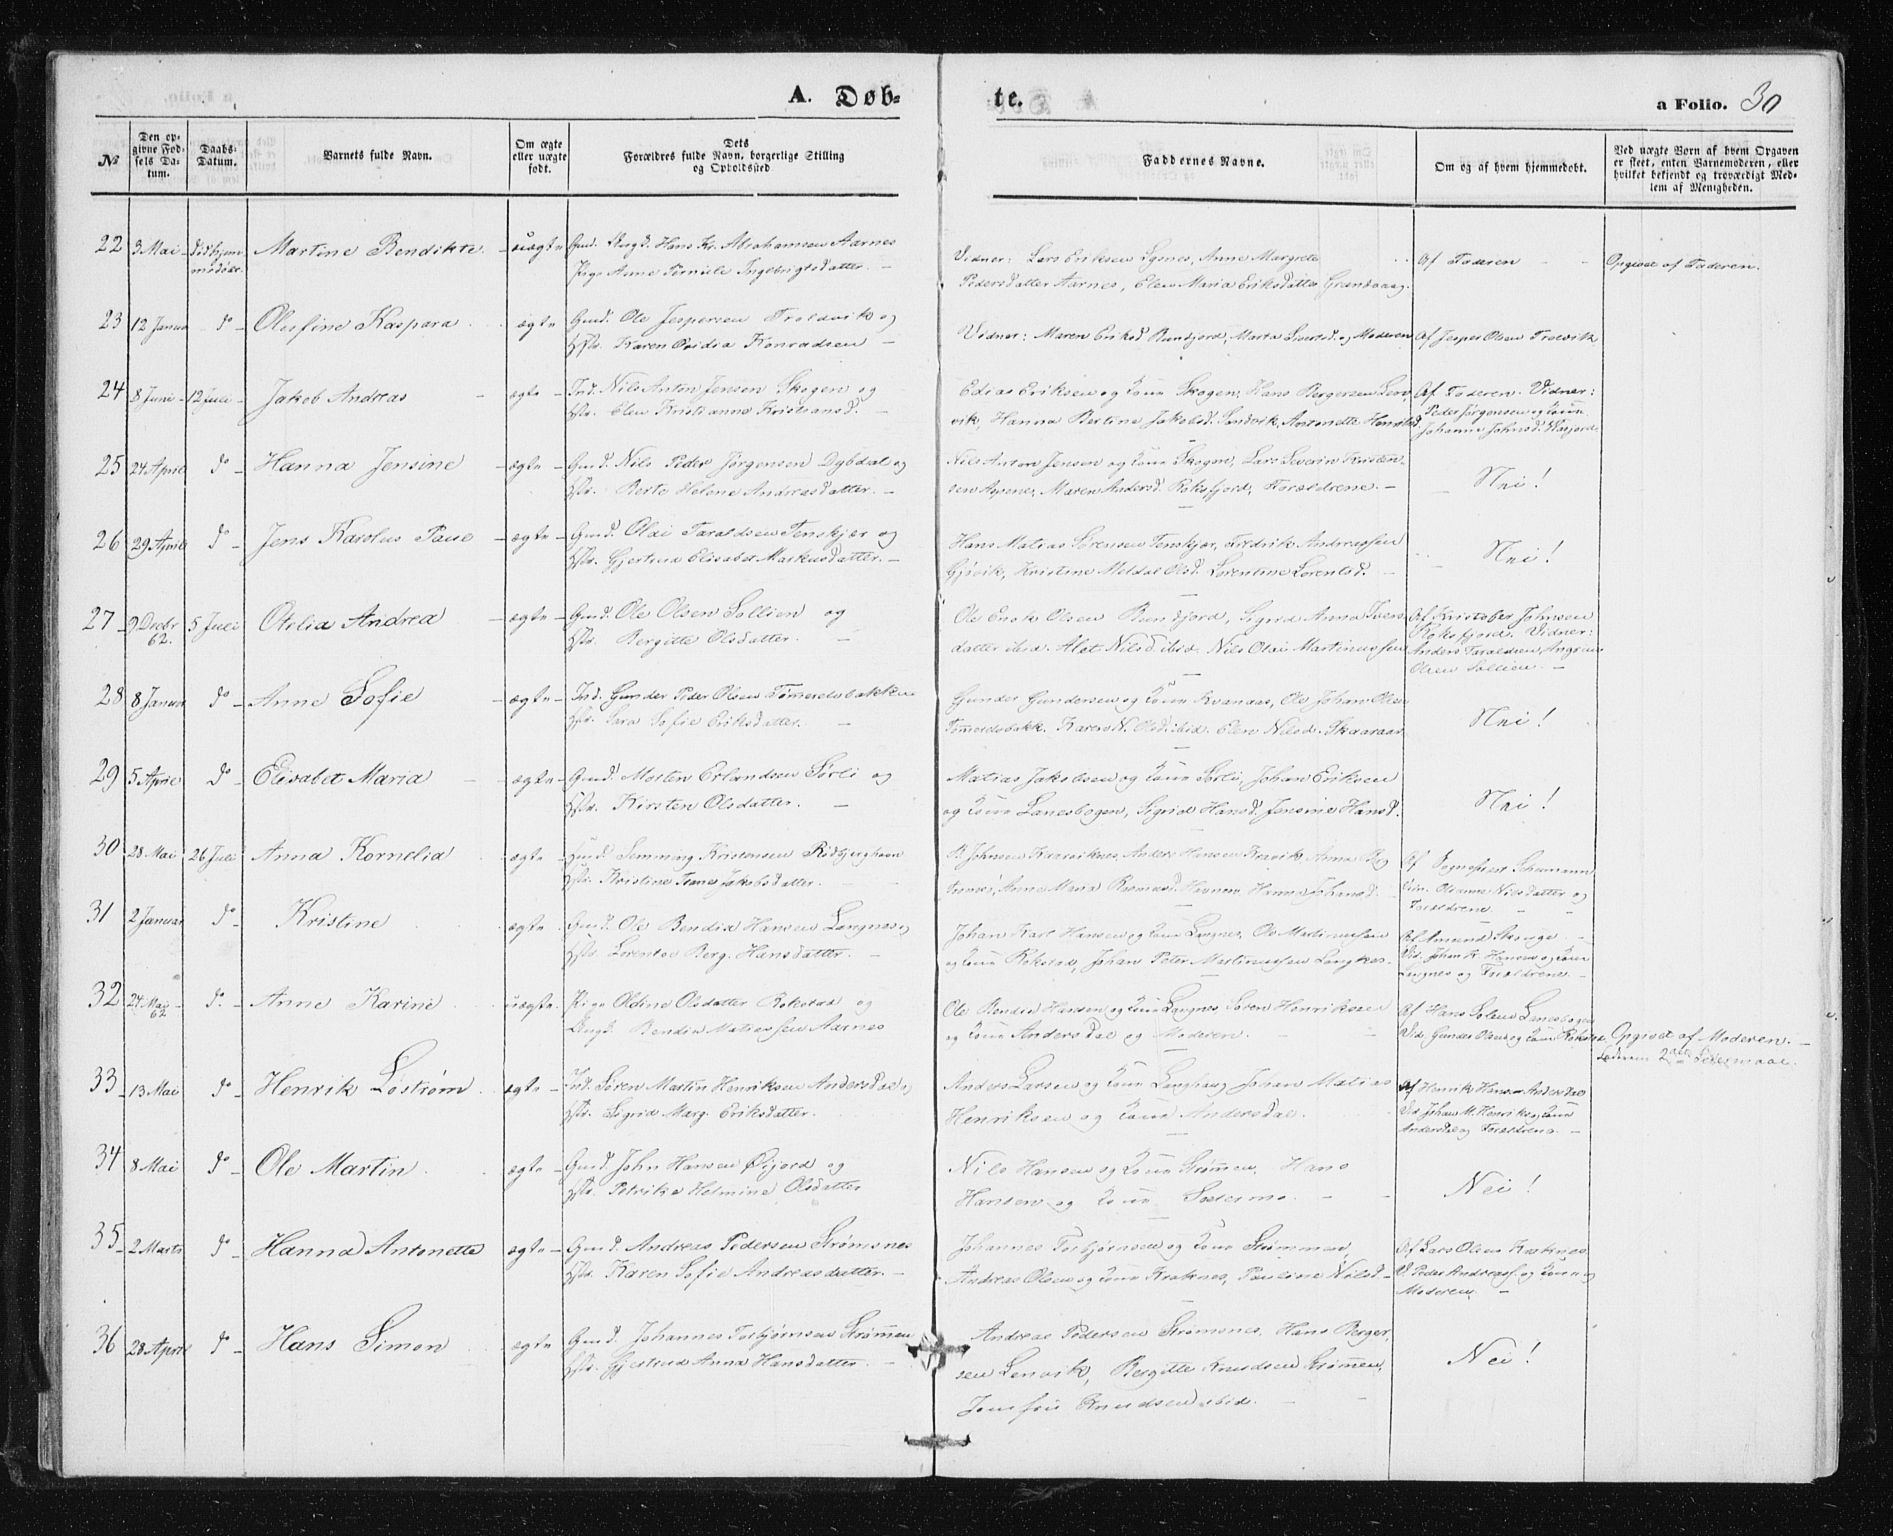 A. Døb-
te.
a Folio. 30
№
Den op-
givne Fød-
sels Da-
tum.
Daabs-
Datum.
Barnets fulde Navn.
Om ægte
eller uægte
født.
Dets
Forældres fulde Navn, borgerlige Stilling
og Opholdssted
Faddernes Navne.
Om og af hvem hjemmedøbt.
Ved uægte Børn af hvem Opgaven
er skeet, enten Barnemoderen, eller
hvilket bekjendt og troværdigt Med-
lem af Menigheden.
22 3 Mai Martine Bendikte uægte Ungd. Hans Kr. Abrahamsen Aarnes
Pige Anne Pernille Ingebrigtsdatter.
Vidner: Lars Eriksen Egsnes, Anne Margrete
Pedersdatter Aarnes, Elen Maria Eriksdatter Grandvaag.
Af Faderen
Opgivet af Faderen.
23 12 Januar do Olufine Kaspara ægte Gmd. Ole Jespersen Troldvik og
Hstr. Karen Konradsen
Vidner: Maren Eriksd. Bundjord, Marta Sivertsd. og Moderen
Af Jesper Olsen Troldvik
24 8 Juni 12 Juli Jakob Andreas ægte Ind. Nils Anton Jensen Skogen og
Hstr. Elen Kristianna Kristiansd.
Edias Eriksen og Kone Skogen, Hans Bergersen Len-
vik, Hanna Bertine Jakobsd. Sandvik, Antonette Hansd.
Af Faderen. Vidner:
Peder Jørgensen og Kone
Johanna Johnsd.
25 24 April do Hanna Jensine ægte Gmd. Nils Peder Jørgensen Dybdal og
Hstr. Berte Helene Andreasdatter.
Nils Anton Jensen og Kone Skogen, Lars Severin Kristen-
sen Aspenes, Maren Andersd. Roksfjord, Forældrene.
Nei!
26 29 April do Jens Karolus Paul ægte Gmd. Olai Taraldsen Tenskjær og
Hstr. Gjertrud Elisabet Markusdatter.
Hans Matias Sørensen Tenskjær, Fredrik Andreassen
Gjøvik, Kristine Meldal Olsd. Lorentine Lorentsd.
Nei!
27 9 Decbr 62. 5 Juli Otelia Andrea ægte Gmd. Ole Olsen Sollien og
Hstr. Bergitte Olsdatter.
Ole Enok Olsen Bundjord, Sigrid Anna Ivers-
datter ibid. Alet Nilsd. ibid. Nils Olai Martinussen
Af Kristofer Johnsen
Roksfjord. Vidner:
Anders Taraldsen,
Olsen Sollien.
28 8 Januar do Anne Sofie ægte Ind. Gunder Peder Olsen Tømmeråsbakken
Hstr. Sara Sofie Eriksdatter.
Gunder Gundersen og Kone Kvanaas, Ole Johan Olsen
Karen N. Olsd. ibid. Elen Nilsd.
Nei!
29 5 April do Elisabet Maria ægte Gmd. Morten Erlandsen Sørli og
Hstr. Kirsten Olsdatter.
Matias Jakobsen og Kone Sørli, Johan Eriksen
og Kone Lanesbogen, Sigrid Hansd. Jensine Hansd.
Nei!
30 28 Mai 26 Juli Anna Kornelia ægte Hmd. Kristensen Rødbjerghavn
Hstr. Kristine Jakobsdatter.
P. Johnsen Kaarviknes, Anders Hansen
Anne Maria Rasmusd. Havnen, Hanna Johansd.
Af Sognepræst
Oleanna Nilsdatter og
Forældrene
31 2 Januar do Kristine ægte Gmd. Ole Bendix Hansen Langnes og
Hstr. Lorentse Berg. Hansdatter.
Johan Karl Hansen og Kone Langnes, Ole Martinussen
og Kone Rokstad, Johan Peter Martinussen Langnes.
Af Amund
Vid. Johan K. Hansen og Kone
Langnes og Forældrene.
32 24 Mai 62 do. Anne Karine uægte. Pige Oldine Olsdatter Rokstad og
Ungk. Bendix Matiassen Aarnes
Ole Bendix Hansen og Kone Langnes, Søren Henriksen
og Kone Andersdal og Moderen.
Af Hans Lanesbogen
Vid. Gunder Olsen og Kone Rokstad
Opgivet af Moderen.
33 13 Mai do Henrik Løstrøm ægte Ind. Søren Martin Henriksen Andersdal og
Hstr. Sigrid Marg. Eriksdatter.
Anders Larsen og Kone Johan Matias
Henriksen og Kone Andersdal.
Af Henrik Hansen Andersdal
Vid. Johan M. Henriks. og Kone
Andersdal og Forældrene.
34 8 Mai do Ole Martin ægte Gmd. John Hansen Øijord og
Hstr. Petrikke Helmine Olsdatter
Nils Hansen og Kone Strømmen, Hans
Hansen og Kone
Nei!
35 2 Marts do Hanna Antonette ægte Gmd. Andreas Pedersen Strømsnes
Hstr. Karen Sofie Andreasdatter.
Johannes Torbjørnsen og Kone Strømmen,
Andreas Olsen og Kone Kraknes, Pauline Nilsd.
Af Lars Olsen Kraknes
V. Peder Andreass. og Kone og
Moderen.
36 28 April do Hans Simon ægte Gmd. Johannes Torbjørnsen Strømmen
Hstr. Gjertrud Anna Hansdatter.
Andreas Pedersen Strømsnes, Hans Berger-
sen Lenvik, Bergitte Knudsen Strømmen,
Knudsen ibid.
Nei!